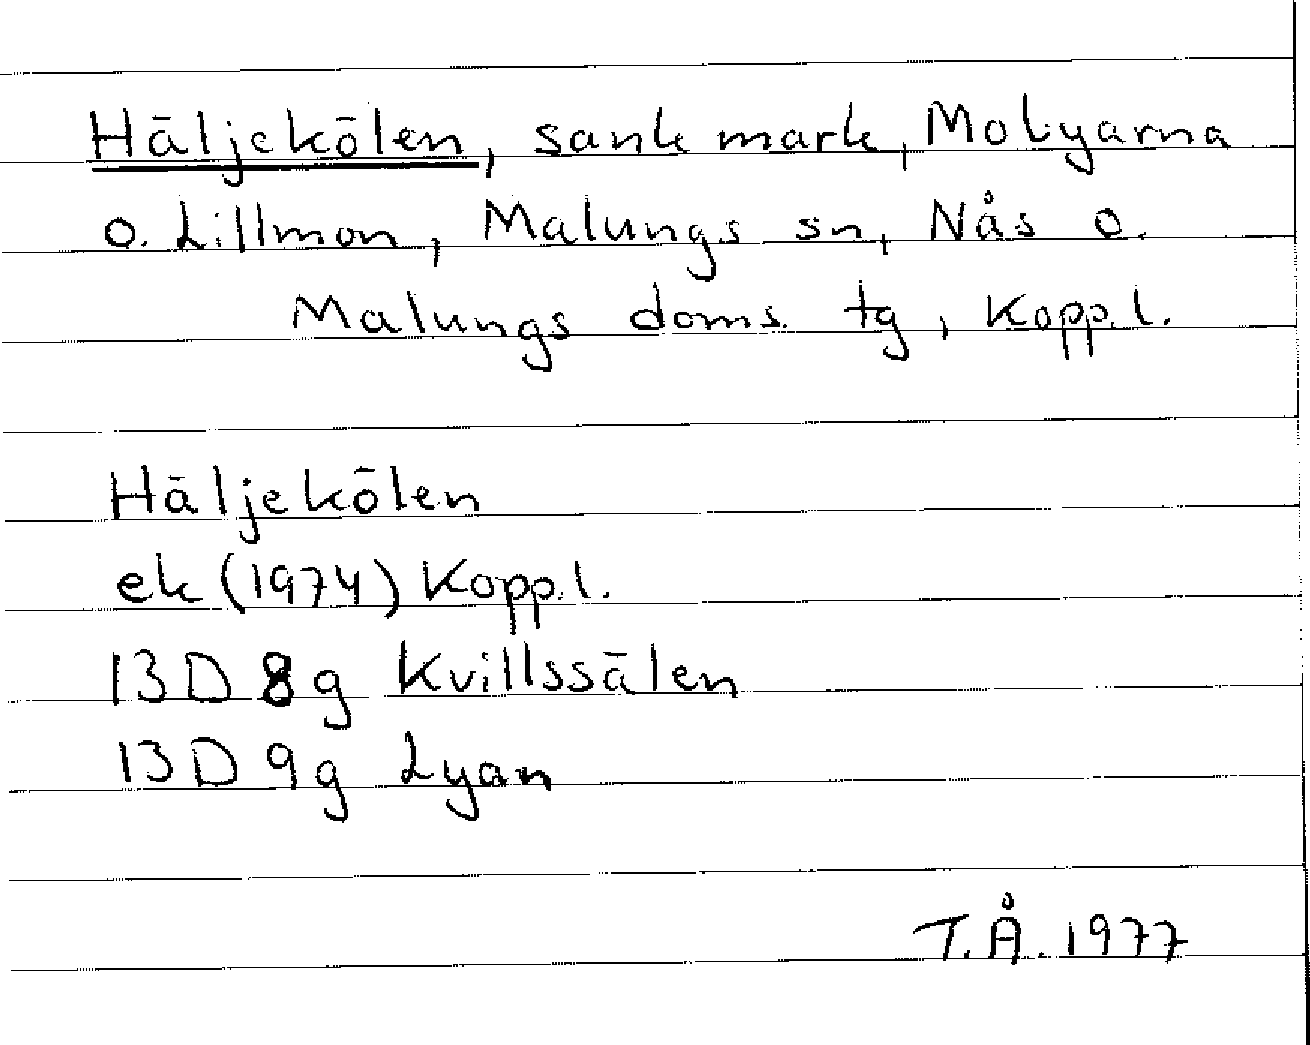 Häljekölen, sank mark, Mobyarna
o. Lillmon, Malungs sn, Nås o.
Malungs doms. tg, Kopp.l.
Häljekölen
ek (1974) Kopp.l.
13 D 8 g Kvillssälen
13 D 9 g Lyan
T.Å. 1977